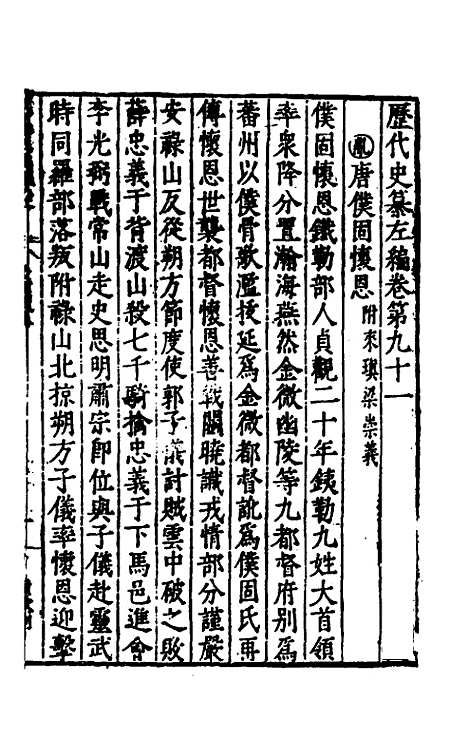 歷代史纂左編卷第九十一
亂唐僕固懷恩附來瑱梁崇義
僕固懷恩鐵勒部人貞觀二十年鐵勒九姓大首領
率衆降分置瀚海燕然金微幽陵等九都督府別爲
蕃州以僕骨歌濫拔延爲金微都督訛爲僕固氏再
傳懷恩世襲都督懷恩善戰鬬曉識戎情部分謹嚴
安祿山反從朔方節度使郭子儀討賊雲中破之敗
薛忠義于背渡山殺七千騎擒忠義于下馬邑進會
李光弼戰常山走史思明肅宗卽位與子儀赴靈武
時同羅部落叛附祿山北掠朔方子儀率懷恩迎擊